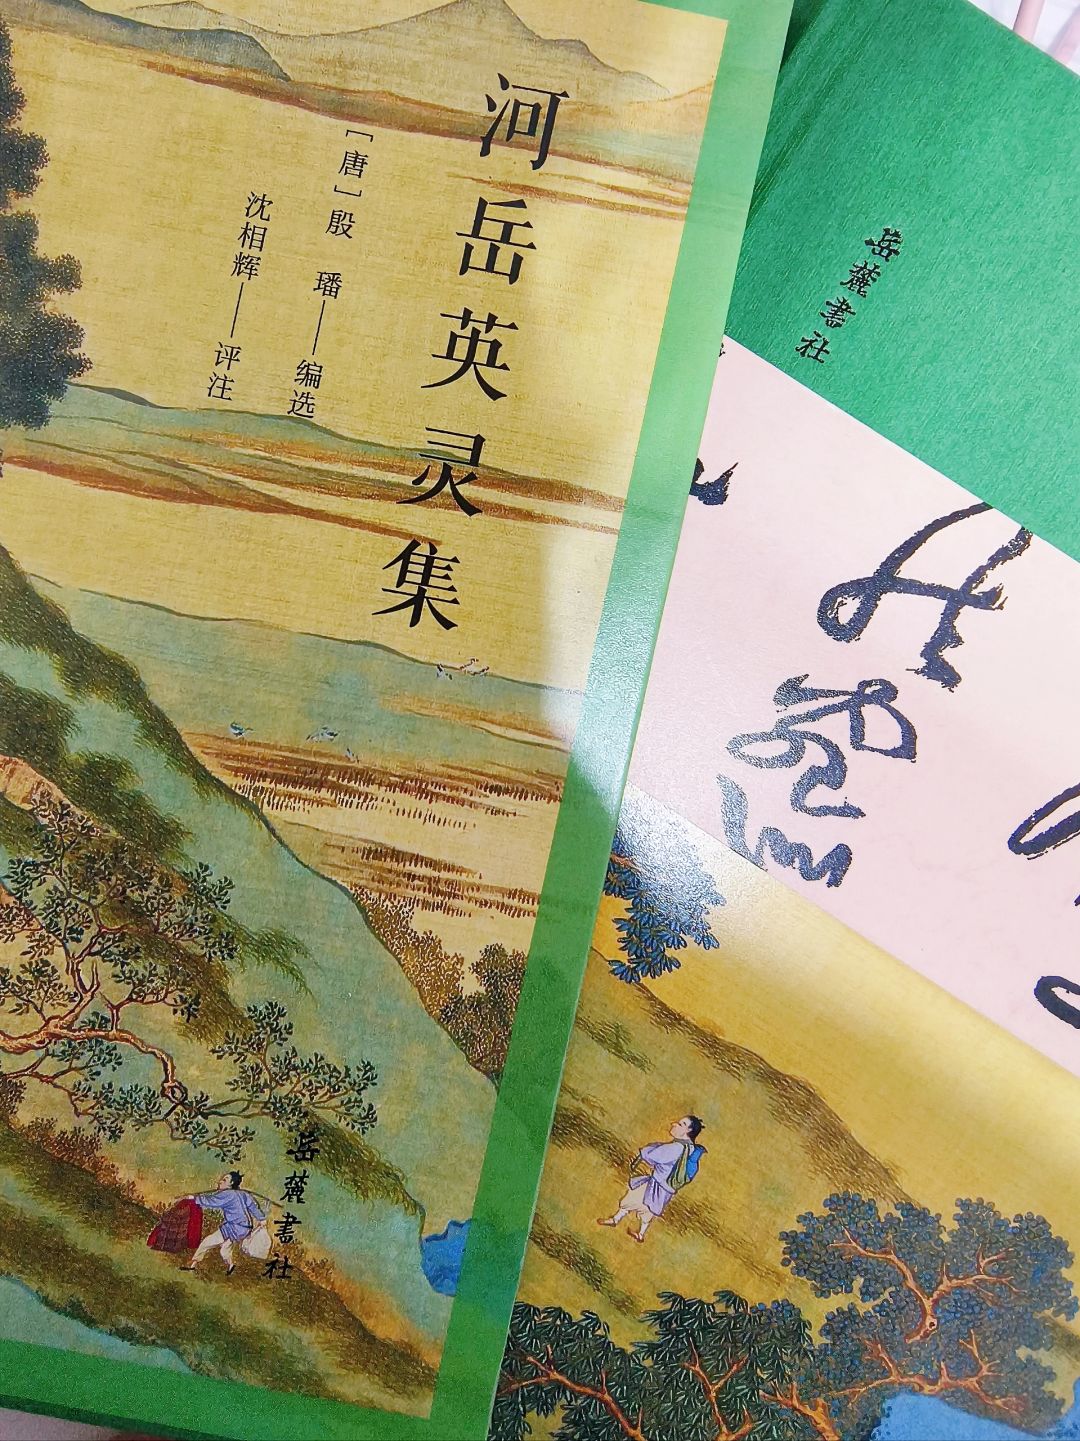 河岳英灵集
[唐]殷 璠——编选
沈相辉——评注
岳麓書社
岳麓書社